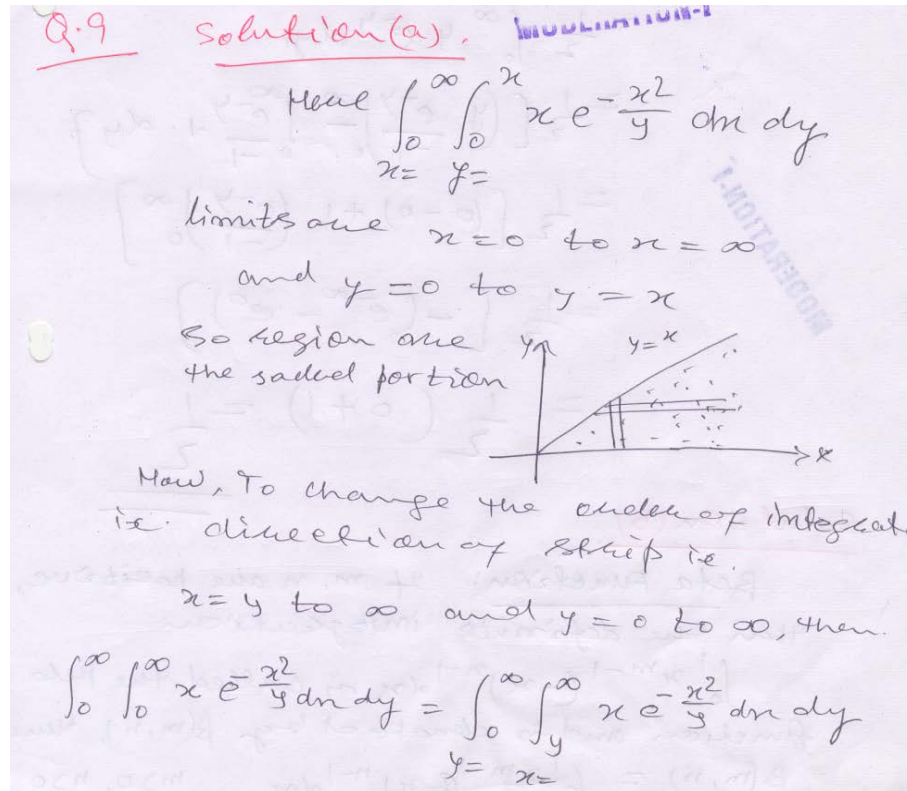 Q.9 Solution(a). MODERATION-1
Here ∫₀^∞ ∫₀^x x e^{-x²/y} dx dy
x= y=
limits are x=0 to x=∞
and y=0 to y=x
So region are
the saded portion
y y=x
x
MODERATION-1
Now, To change the order of integrat
ie. direction of strip ie.
x=y to ∞ and y=0 to ∞, then.
∫₀^∞ ∫₀^∞ x e^{-x²/y} dx dy = ∫₀^∞ ∫_y^∞ x e^{-x²/y} dx dy
y= x=